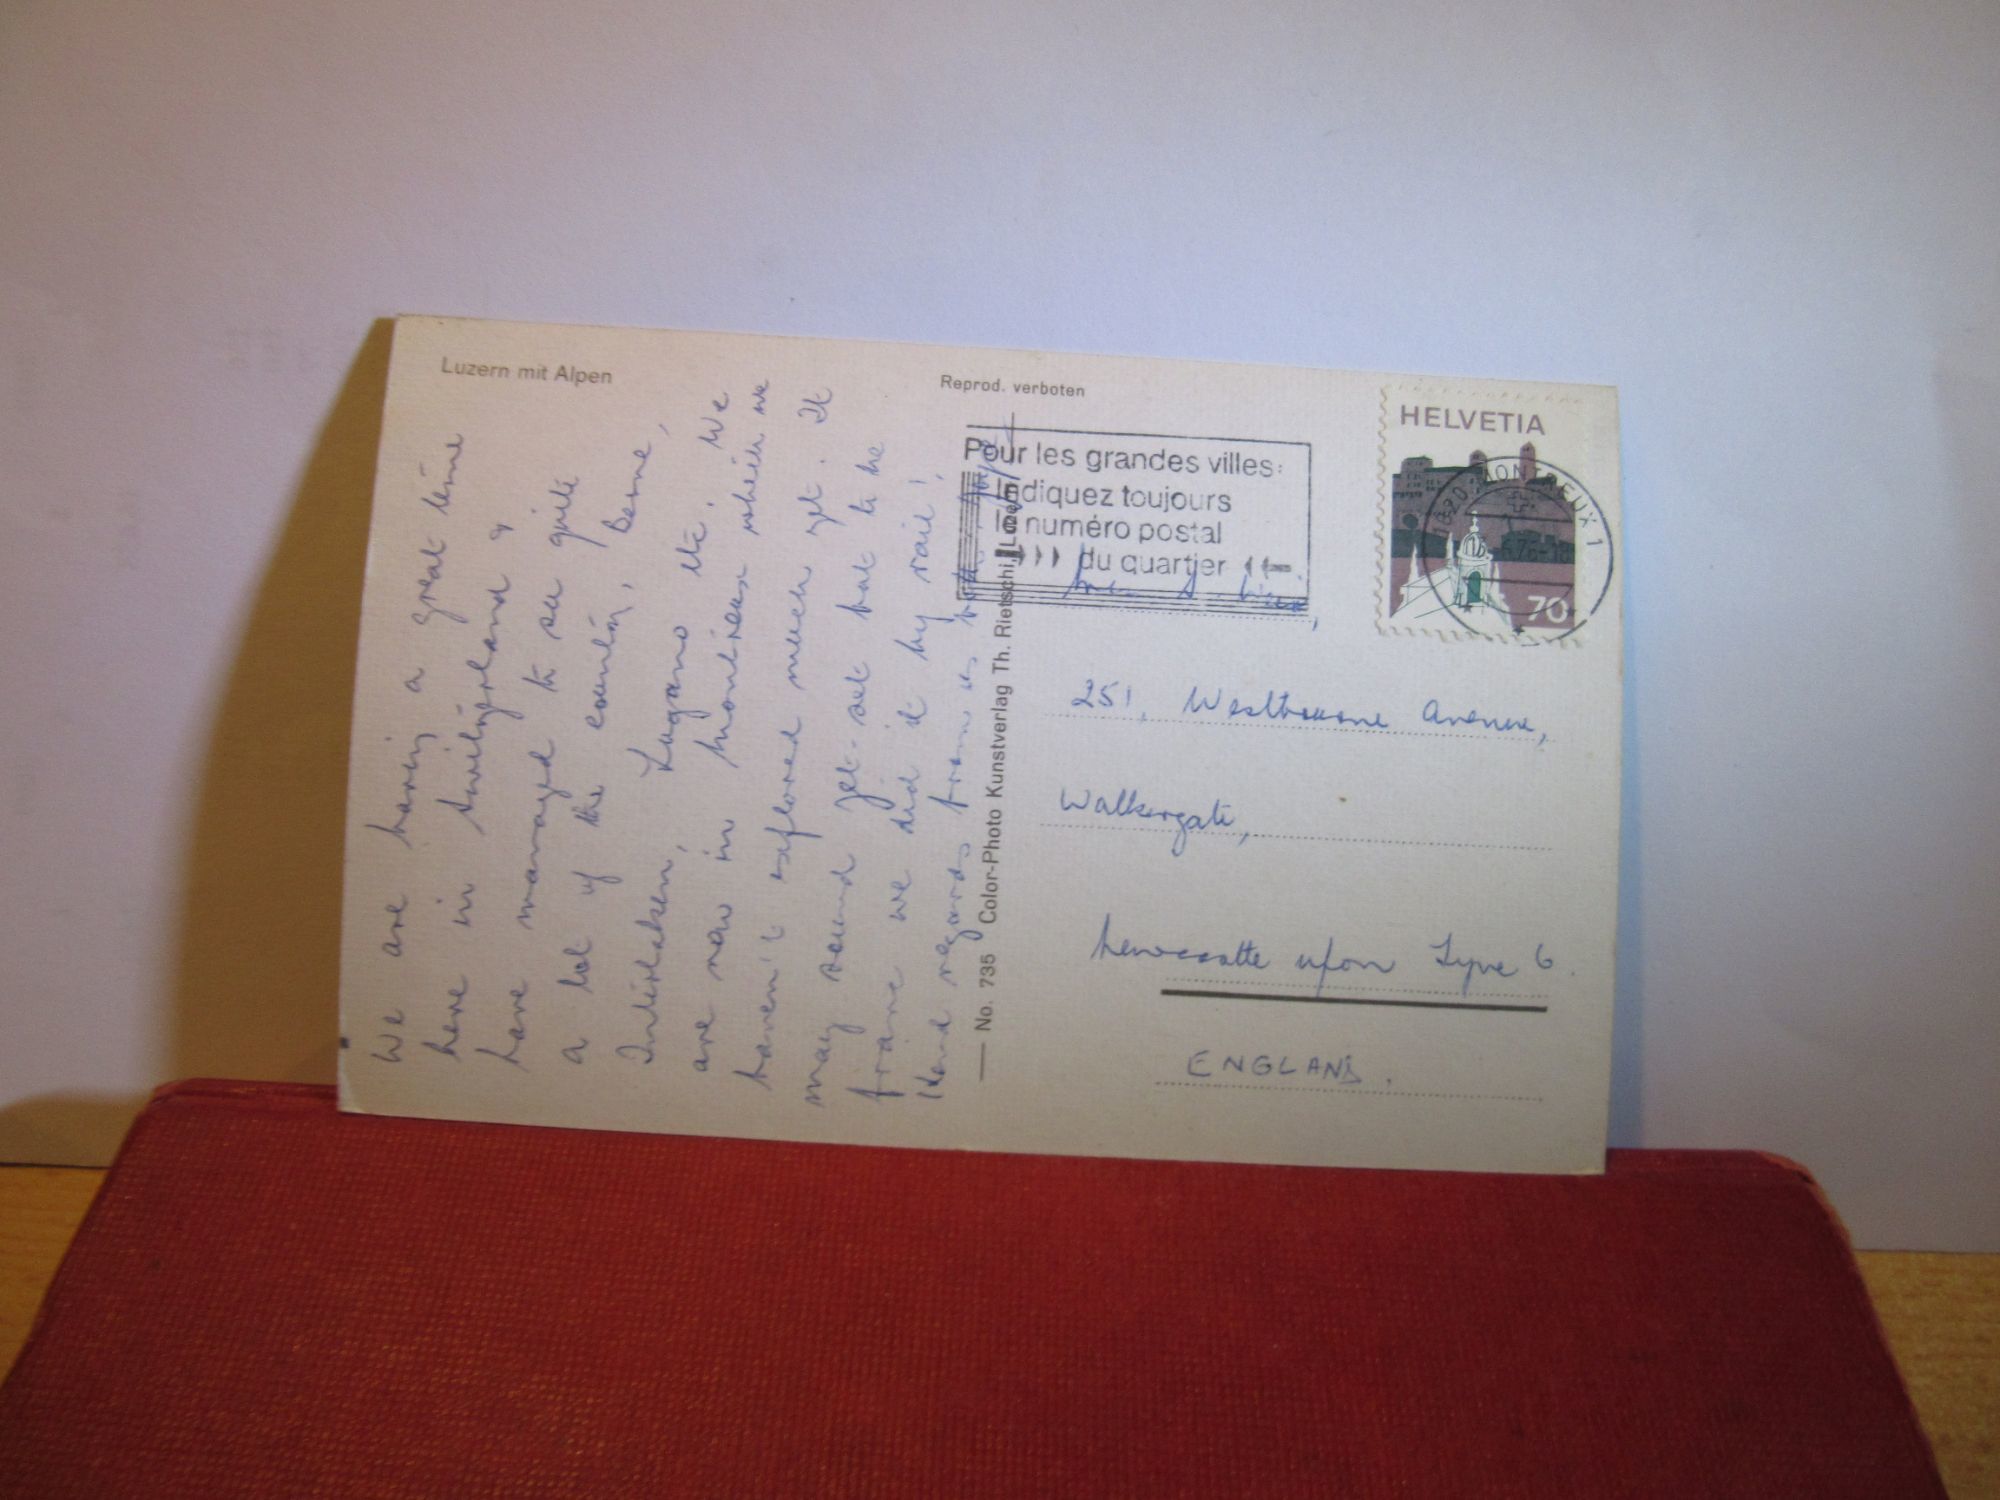 Luzern mit Alpen
We are having a great time
here in Switzerland &
have managed to see quite
a lot of the country, Berne,
Interlaken, Lugano etc. We
are now in Montreux which we
haven't explored much yet. It
may sound jet-set but to be
we did it by rail!
Kind regards from us both
Reprod. verboten
No. 735 Color-Photo Kunstverlag Th. Rietschi, Luzern
Pour les grandes villes:
Indiquez toujours
le numéro postal
du quartier
HELVETIA
70
1820 MONTREUX 1
251, Westbourne Avenue,
Walkergate,
Newcastle upon Tyne 6.
ENGLAND.